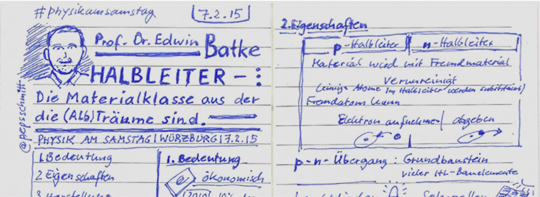 #physikamsamstag
7.2.15
Prof. Dr. Edwin
Batke
HALBLEITER -
Die Materialklasse aus der
die (Alb)Träume sind.
@pepsschmitt
PHYSIK AM SAMSTAG | WÜRZBURG | 7.2.15
1. Bedeutung
2 Eigenschaften
3. Herstellung
1. Bedeutung
ökonomisch
2. Eigenschaften
p-Halbleiter
n-Halbleiter
Material wird mit Fremdmaterial
Verunreinigt
(einige Atome im Halbleiter werden substituiert)
Fremdatom kann
Elektron aufnehmen / abgeben
p-n-Übergang: Grundbaustein
vieler HL-Bauelemente
Solarzellen